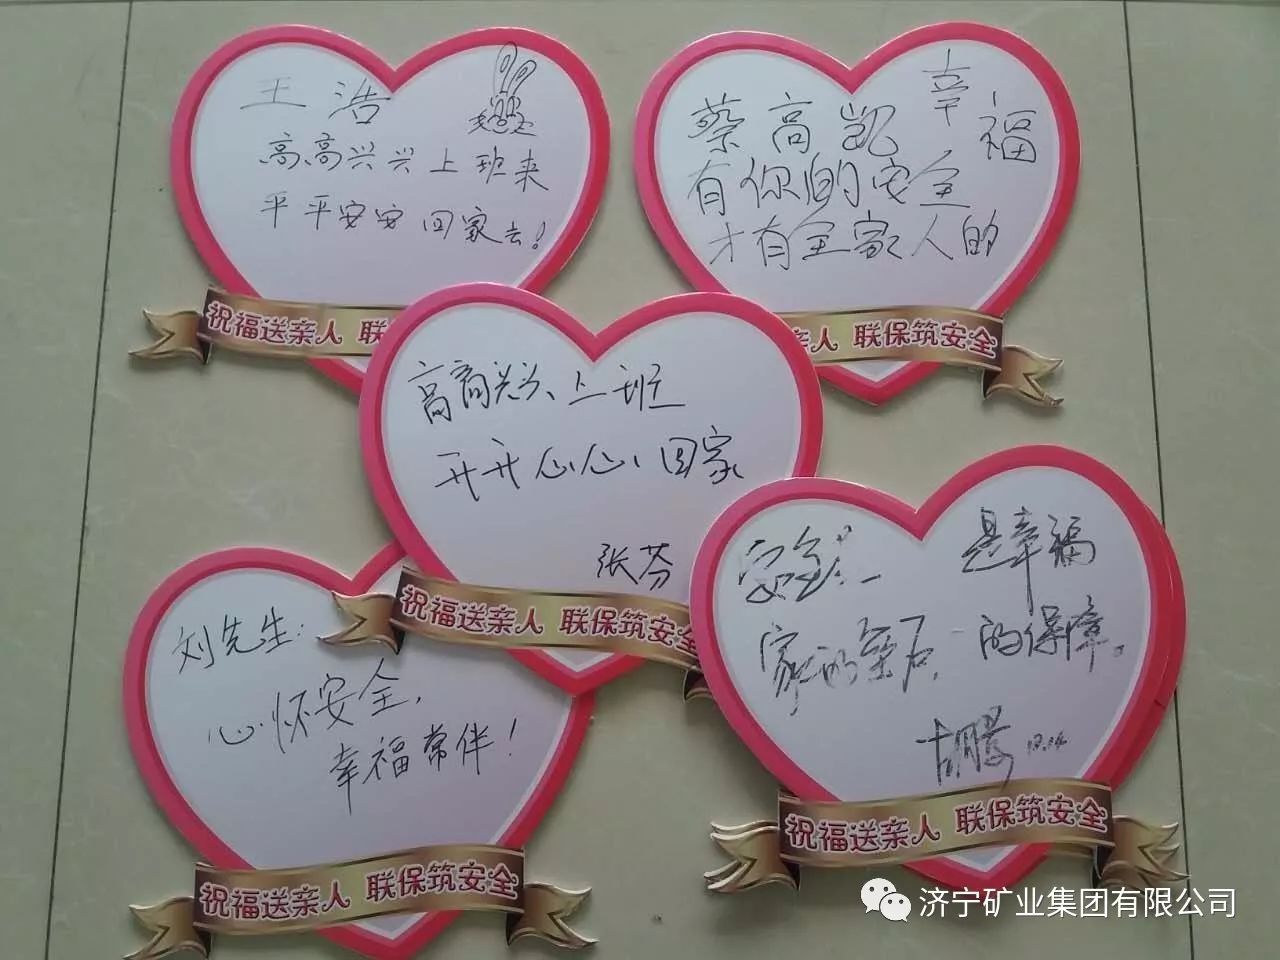 王浩
高高兴兴上班来
平平安安回家去!
祝福送亲人 联
蔡高凯
幸福
有你的安全
才有全家人的
人 联保筑安全
高高兴兴上班
开开心心回家
张芬
祝福送亲人 联保筑安全
刘先生:
心怀安全,
幸福常伴!
祝福送亲人 联保筑安全
安全
是幸福
家的
的保障。
胡腾 12.14
祝福送亲人 联保筑安全
济宁矿业集团有限公司